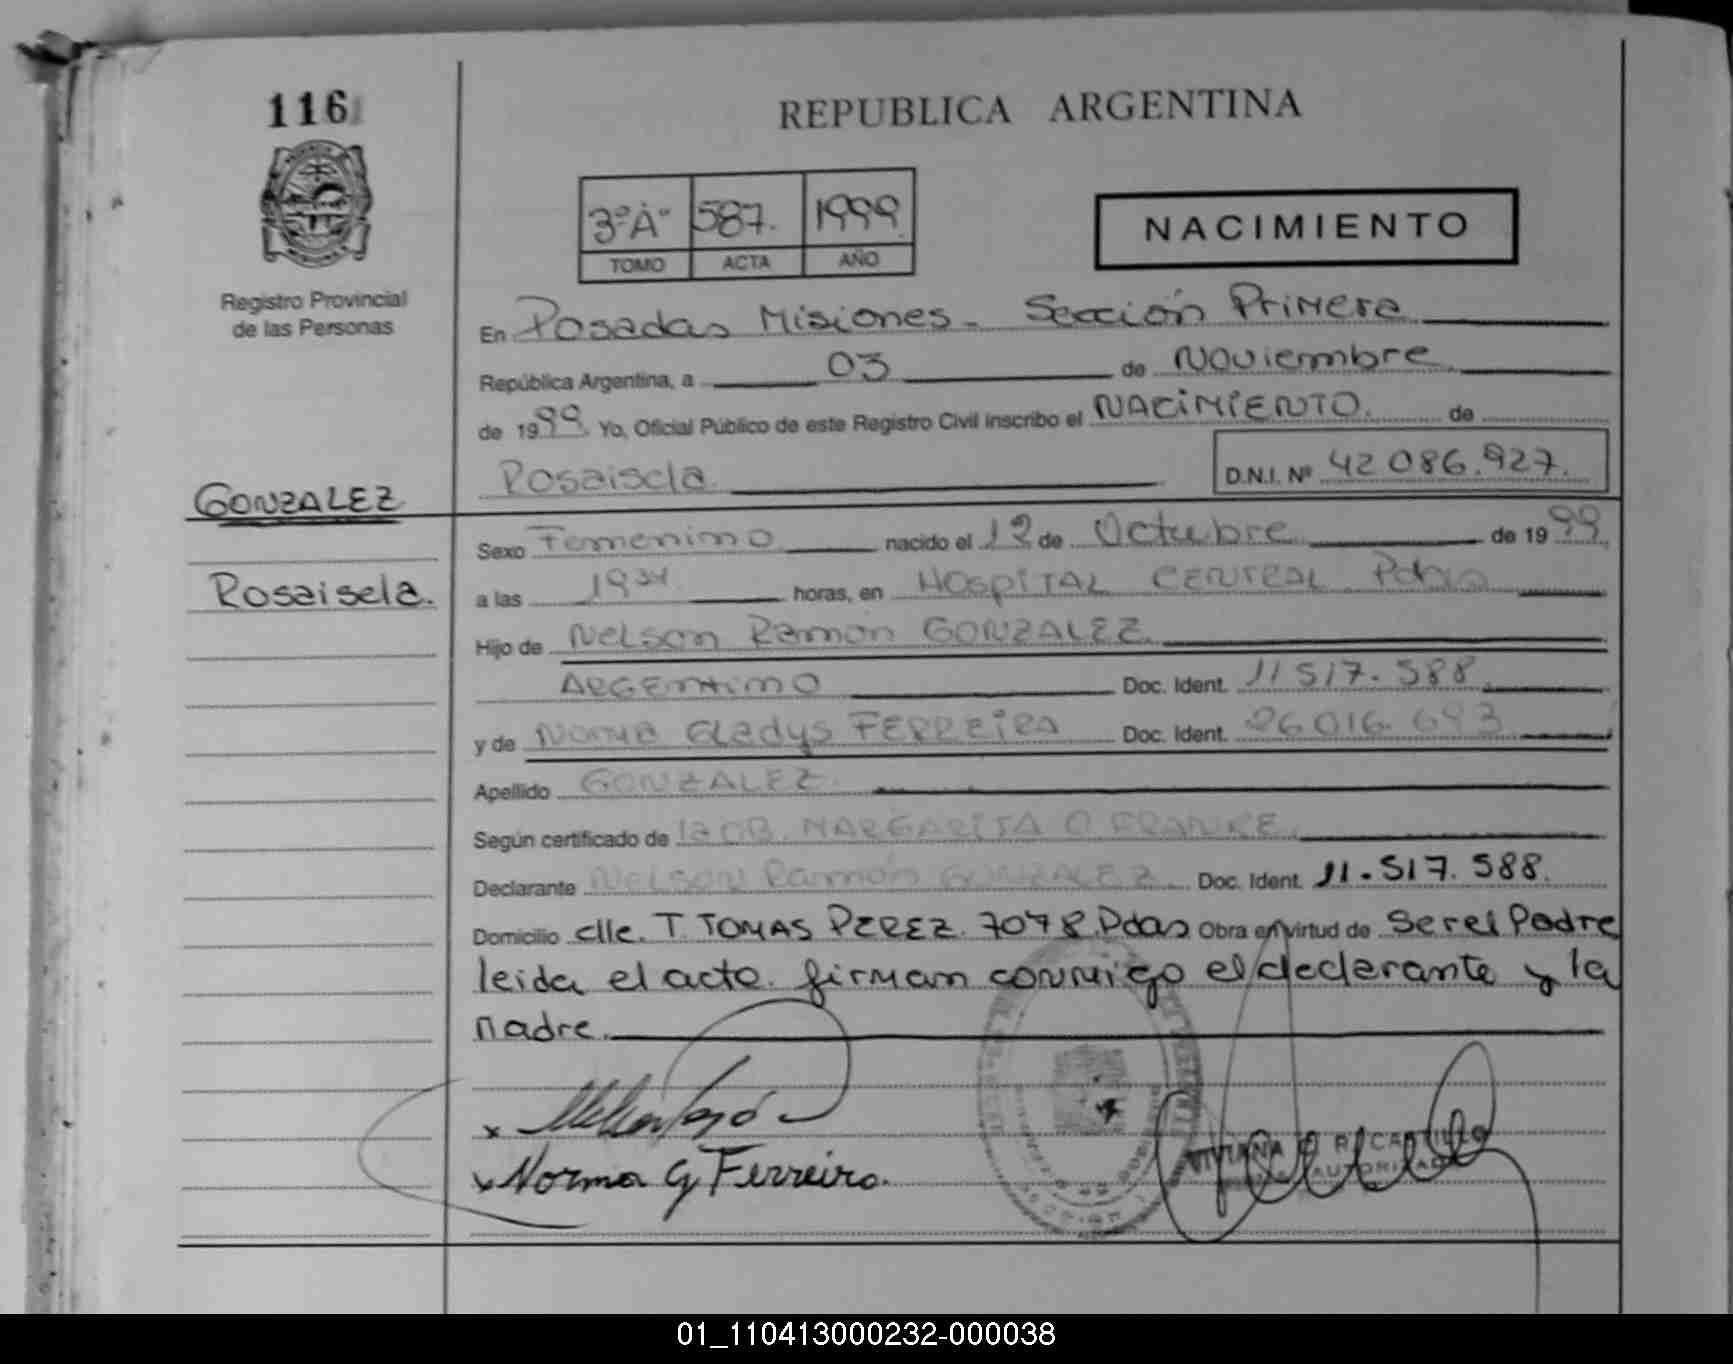 116
REPUBLICA ARGENTINA
3º A" 587. 1999.
TOMO ACTA AÑO
NACIMIENTO
Registro Provincial
de las Personas
En Posadas Misiones - Sección Primera
República Argentina, a 03 de Noviembre
de 1999. Yo, Oficial Público de este Registro Civil inscribo el NACIMIENTO. de
Rosaisela D.N.I. Nº 42 086.927.
GONZALEZ
Sexo Femenino nacido el 12 de Octubre de 1999
Rosaisela.
a las horas, en HOSPITAL CENTRAL Pdas
Hijo de Nelson Ramon GONZALEZ
ARGENTINO Doc. Ident. 11 517. 588
y de Norma Gladys FERREIRA Doc. Ident. 26 016. 693
Apellido GONZALEZ.
Según certificado de MARGARITA FRANKE.
Declarante Nelson Ramón GONZALEZ Doc. Ident. 11. 517. 588.
Domicilio clle. T. TOMAS PEREZ. 7078. Pdas Obra en virtud de Ser el Padre
leida el acta. firman conmigo el declarante y la
madre.
x
x Norma G Ferreira.
VIVIANA R CASTILLO
AUTORIZADO
01_110413000232-000038